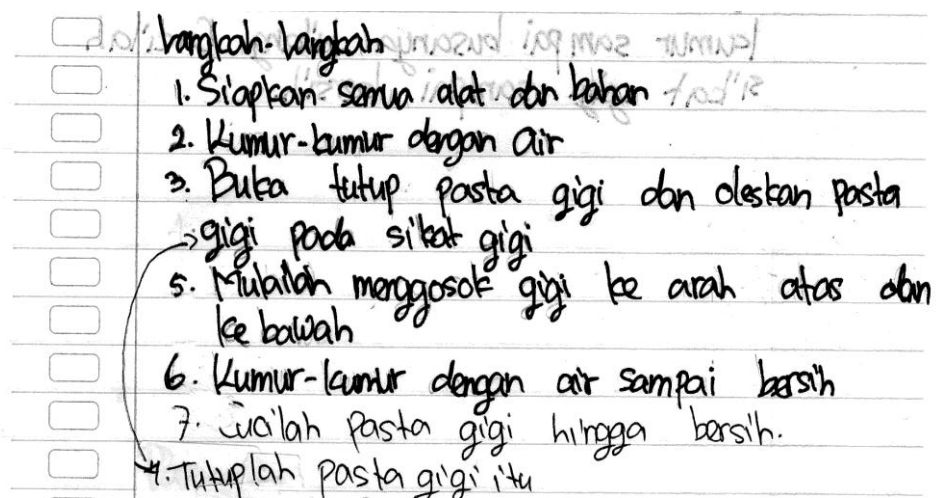 Langkah-Langkah
1. Siapkan semua alat dan bahan
2. Kumur-kumur dengan air
3. Buka tutup pasta gigi dan oleskan pasta
gigi pada sikat gigi
5. Mulailah menggosok gigi ke arah atas dan
ke bawah
6. Kumur-kumur dengan air sampai bersih
7. Cucilah pasta gigi hingga bersih.
4. Tutuplah pasta gigi itu